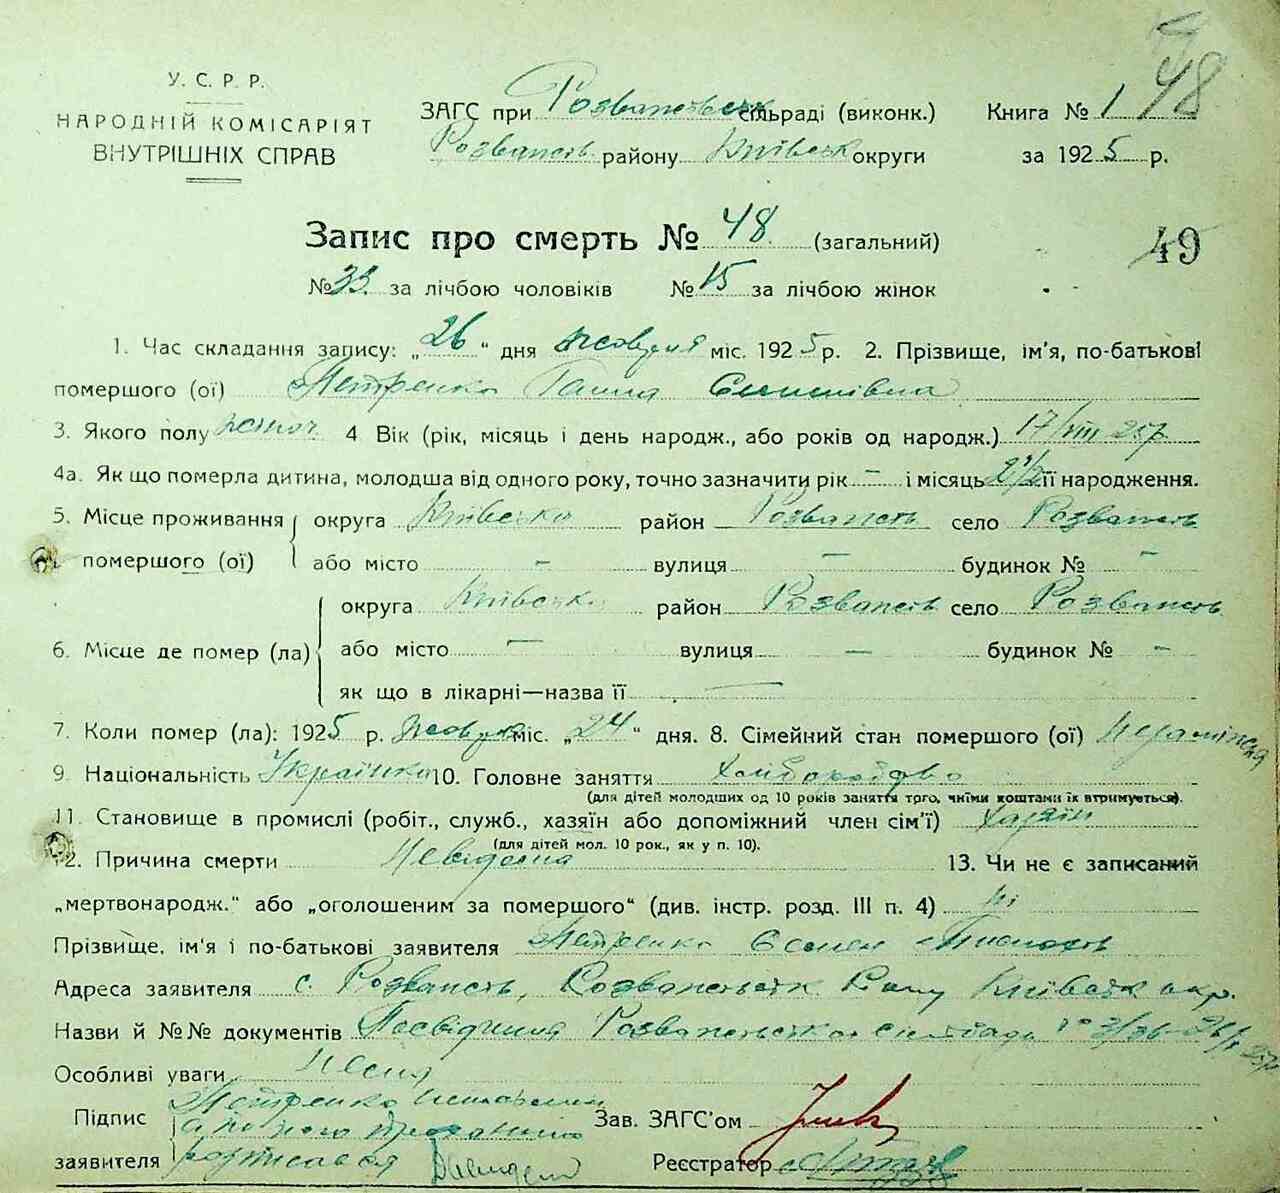 48
У. С. Р. Р.
НАРОДНІЙ КОМІСАРІЯТ
ВНУТРІШНІХ СПРАВ
ЗАГС при Розважевськ сільраді (виконк.)
Книга № 1
Розважев. району Київськ округи
за 1925 р.
Запис про смерть № 48. (загальний)
49
№ 33. за лічбою чоловіків № 15 за лічбою жінок
1. Час складання запису: „26“ дня жовтня міс. 1925 р. 2. Прізвище, ім'я, по-батькові
помершого (ої) Петренко Ганна Семенівна
3. Якого полу жіноч. 4 Вік (рік, місяць і день народж., або років од народж.) 17/VIII 25 р
4а. Як що померла дитина, молодша від одного року, точно зазначити рік – і місяць 2 1/2 її народження.
5. Місце проживання округа Київсько район село
помершого (ої) або місто – вулиця – будинок № –
округа Київсько район село
6. Місце де помер (ла) або місто – вулиця – будинок № –
як що в лікарні—назва її —
7. Коли помер (ла): 1925 р. жовтня міс. „24“ дня. 8. Сімейний стан помершого (ої)
9. Національність Українка 10. Головне заняття Хліборобство
(для дітей молодших од 10 років заняття того, чиїми коштами їх втримується).
11. Становище в промислі (робіт., служб., хазяїн або допоміжний член сім'ї) Хазяїн
(для дітей мол. 10 рок., як у п. 10).
12. Причина смерти Невідома 13. Чи не є записаний
„мертвонародж.“ або „оголошеним за помершого“ (див. інстр. розд. III п. 4) ні
Прізвище, ім'я і по-батькові заявителя Петренко Семен
Адреса заявителя с. Київськ окр.
Назви й №№ документів Посвідчення сільради
Особливі уваги Немає
Підпис Петренко неписьмен
а по його проханню
Зав. ЗАГС'ом
заявителя розписався
Реєстратор